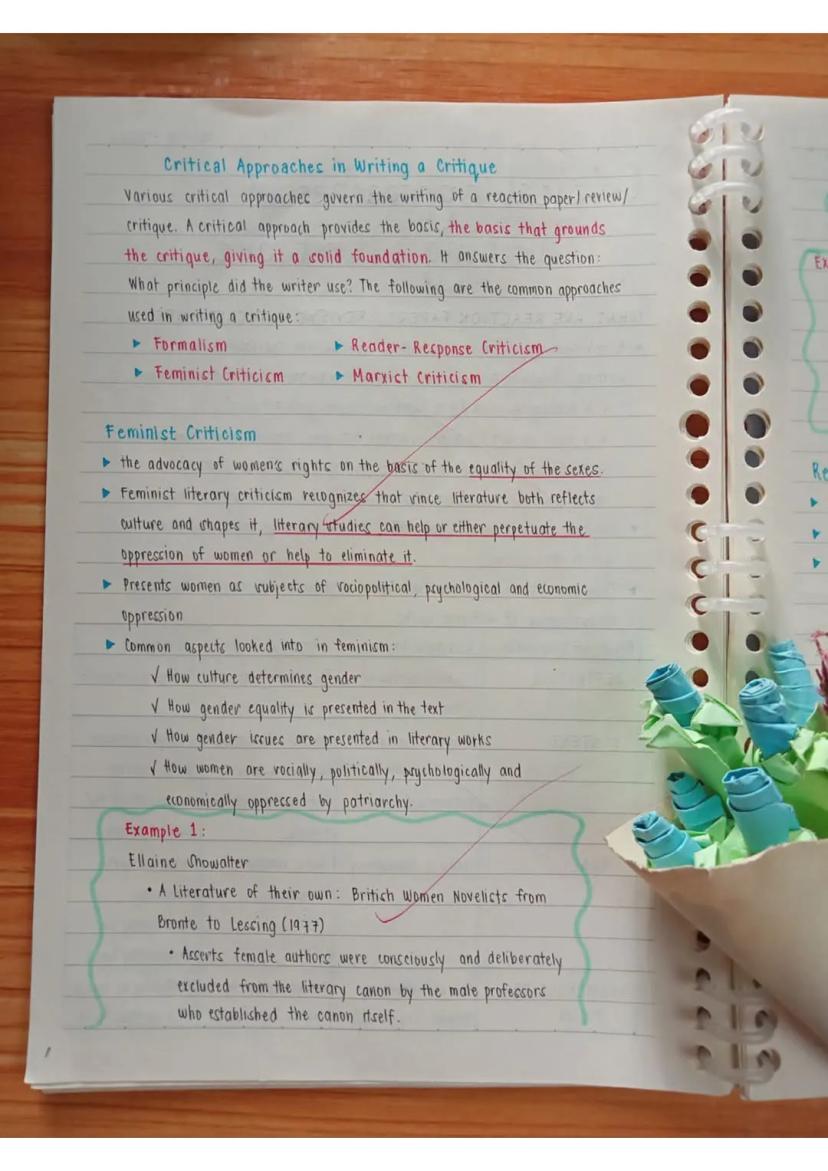 Critical Approaches in Writing a Critique
Various critical approaches govern the writing of a reaction paper/review/
critique. A critical approach provides the basis, the basis that grounds
the critique, giving it a solid foundation. It answers the question:
What principle did the writer use? The following are the common approaches
used in writing a critique:
▸ Formalism ▸ Reader-Response Criticism
▸ Feminist Criticism ▸ Marxist Criticism
Feminist Criticism
▸ the advocacy of women's rights on the basis of the equality of the sexes.
▸ Feminist literary criticism recognizes that since literature both reflects
culture and shapes it, literary studies can help or either perpetuate the
oppression of women or help to eliminate it.
▸ Presents women as subjects of sociopolitical, psychological and economic
oppression
▸ Common aspects looked into in feminism:
√ How culture determines gender
√ How gender equality is presented in the text
√ How gender issues are presented in literary works
√ How women are socially, politically, psychologically and
economically oppressed by patriarchy.
Example 1:
Ellaine Showalter
• A Literature of their own: British Women Novelists from
Bronte to Lessing (1977)
• Asserts female authors were consciously and deliberately
excluded from the literary canon by the male professors
who established the canon itself.
Ex
Re